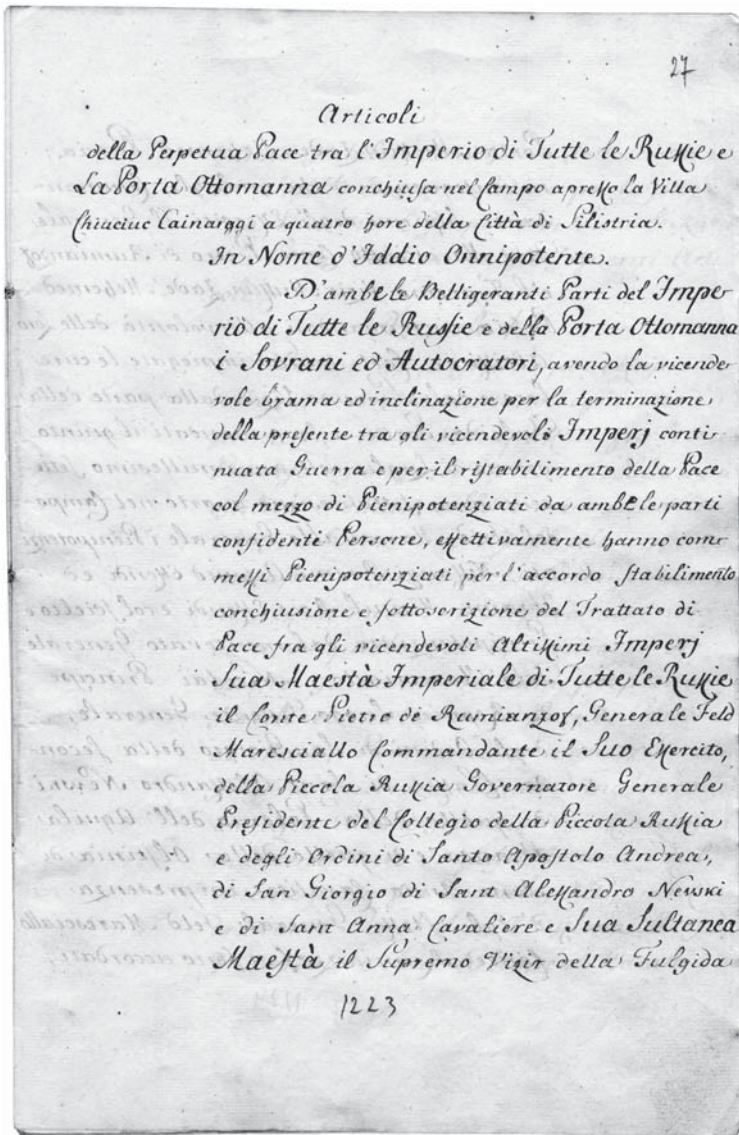 27
Articoli
della Perpetua Pace tra l'Imperio di Tutte le Russie e
La Porta Ottomanna conchiusa nel Campo apresso la Villa
Chiuciuc Cainarggi a quatro hore della Città di Silistria.
In Nome d'Iddio Onnipotente.
D'ambe le Belligeranti Parti del Impe-
rio di Tutte le Russie e della Porta Ottomanna
i Sovrani ed Autocratori, avendo la vicende-
vole brama ed inclinazione per la terminazione
della presente tra gli vicendevoli Imperj conti-
nuata Guerra e per il ristabilimento della Pace
col mezzo di Pienipotenziati da ambe le parti
confidenti Persone, effettivamente hanno com-
messi Pienipotenziati per l'accordo stabilimento
conchiusione e sottoscrizione del Trattato di
Pace fra gli vicendevoli Altissimi Imperj
Sua Maestà Imperiale di Tutte le Russie
il Conte Pietro de Rumianzof, Generale Feld
Maresciallo Commandante il Suo Essercito,
della Piccola Russia Governatore Generale
Presidente del Collegio della Piccola Russia
e degli Ordini di Santo Apostolo Andrea,
di San Giorgio di Sant Alessandro Nevski
e di Sant Anna Cavaliere e Sua Sultanea
Maestà il Supremo Vizir della Fulgida
1223